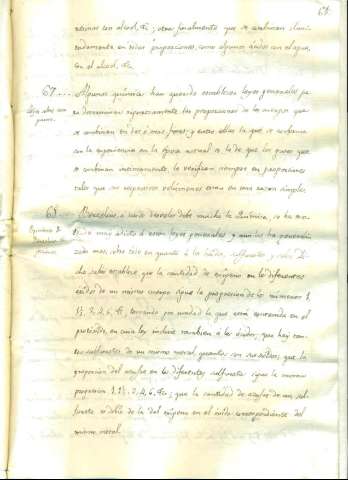 eternos con alcool, &c.; otros finalmente que se combinan
en todas proporciones, como algunos ácidos con el agua,
con el alcool, &c.
67.... Algunos químicos han querido establecer leyes generales pa
ra determinar rigurosamente las proporciones de los cuerpos que
se combinan en dos ó mas; y entre ellas la que se conforma
con la experiencia en la época actual es la de que los gases que
se combinan íntimamente lo verifican siempre en proporciones
tales que sus respectivos volúmenes estan en una razon simple.
68.... Berzelius, á cuyo desvelo debe mucho la Química, se ha mos
trado muy adicto á estas leyes generales y aun las ha
mas, sobre todo en quanto á los óxidos, sulfuretos y sales. Di
cho sabio establece que la cantidad de oxígeno en los diferentes
óxidos de un mismo cuerpo sigue la proporcion de los números 1,
1½, 2, 4, &c, tomando por unidad la que está contenida en el
protóxido, en cuya ley incluye tambien á los ácidos; que hay tan
tos sulfuretos de un mismo metal, quantos son sus óxidos; que la
proporcion del azufre en los diferentes sulfuretos sigue la misma
progresion 1, 1½, 2, 4, &c; que la cantidad de azufre de un sul
fureto es doble de la del oxígeno en el óxido correspondiente del
mismo metal.